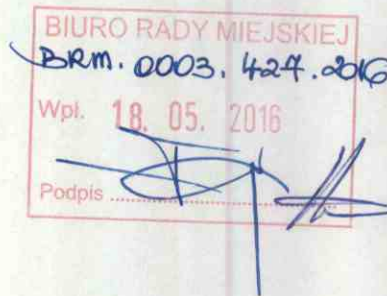 BIURO RADY MIEJSKIEJ
BRM. 0003. 427. 2016
Wpł. 18. 05. 2016
Podpis ..............................